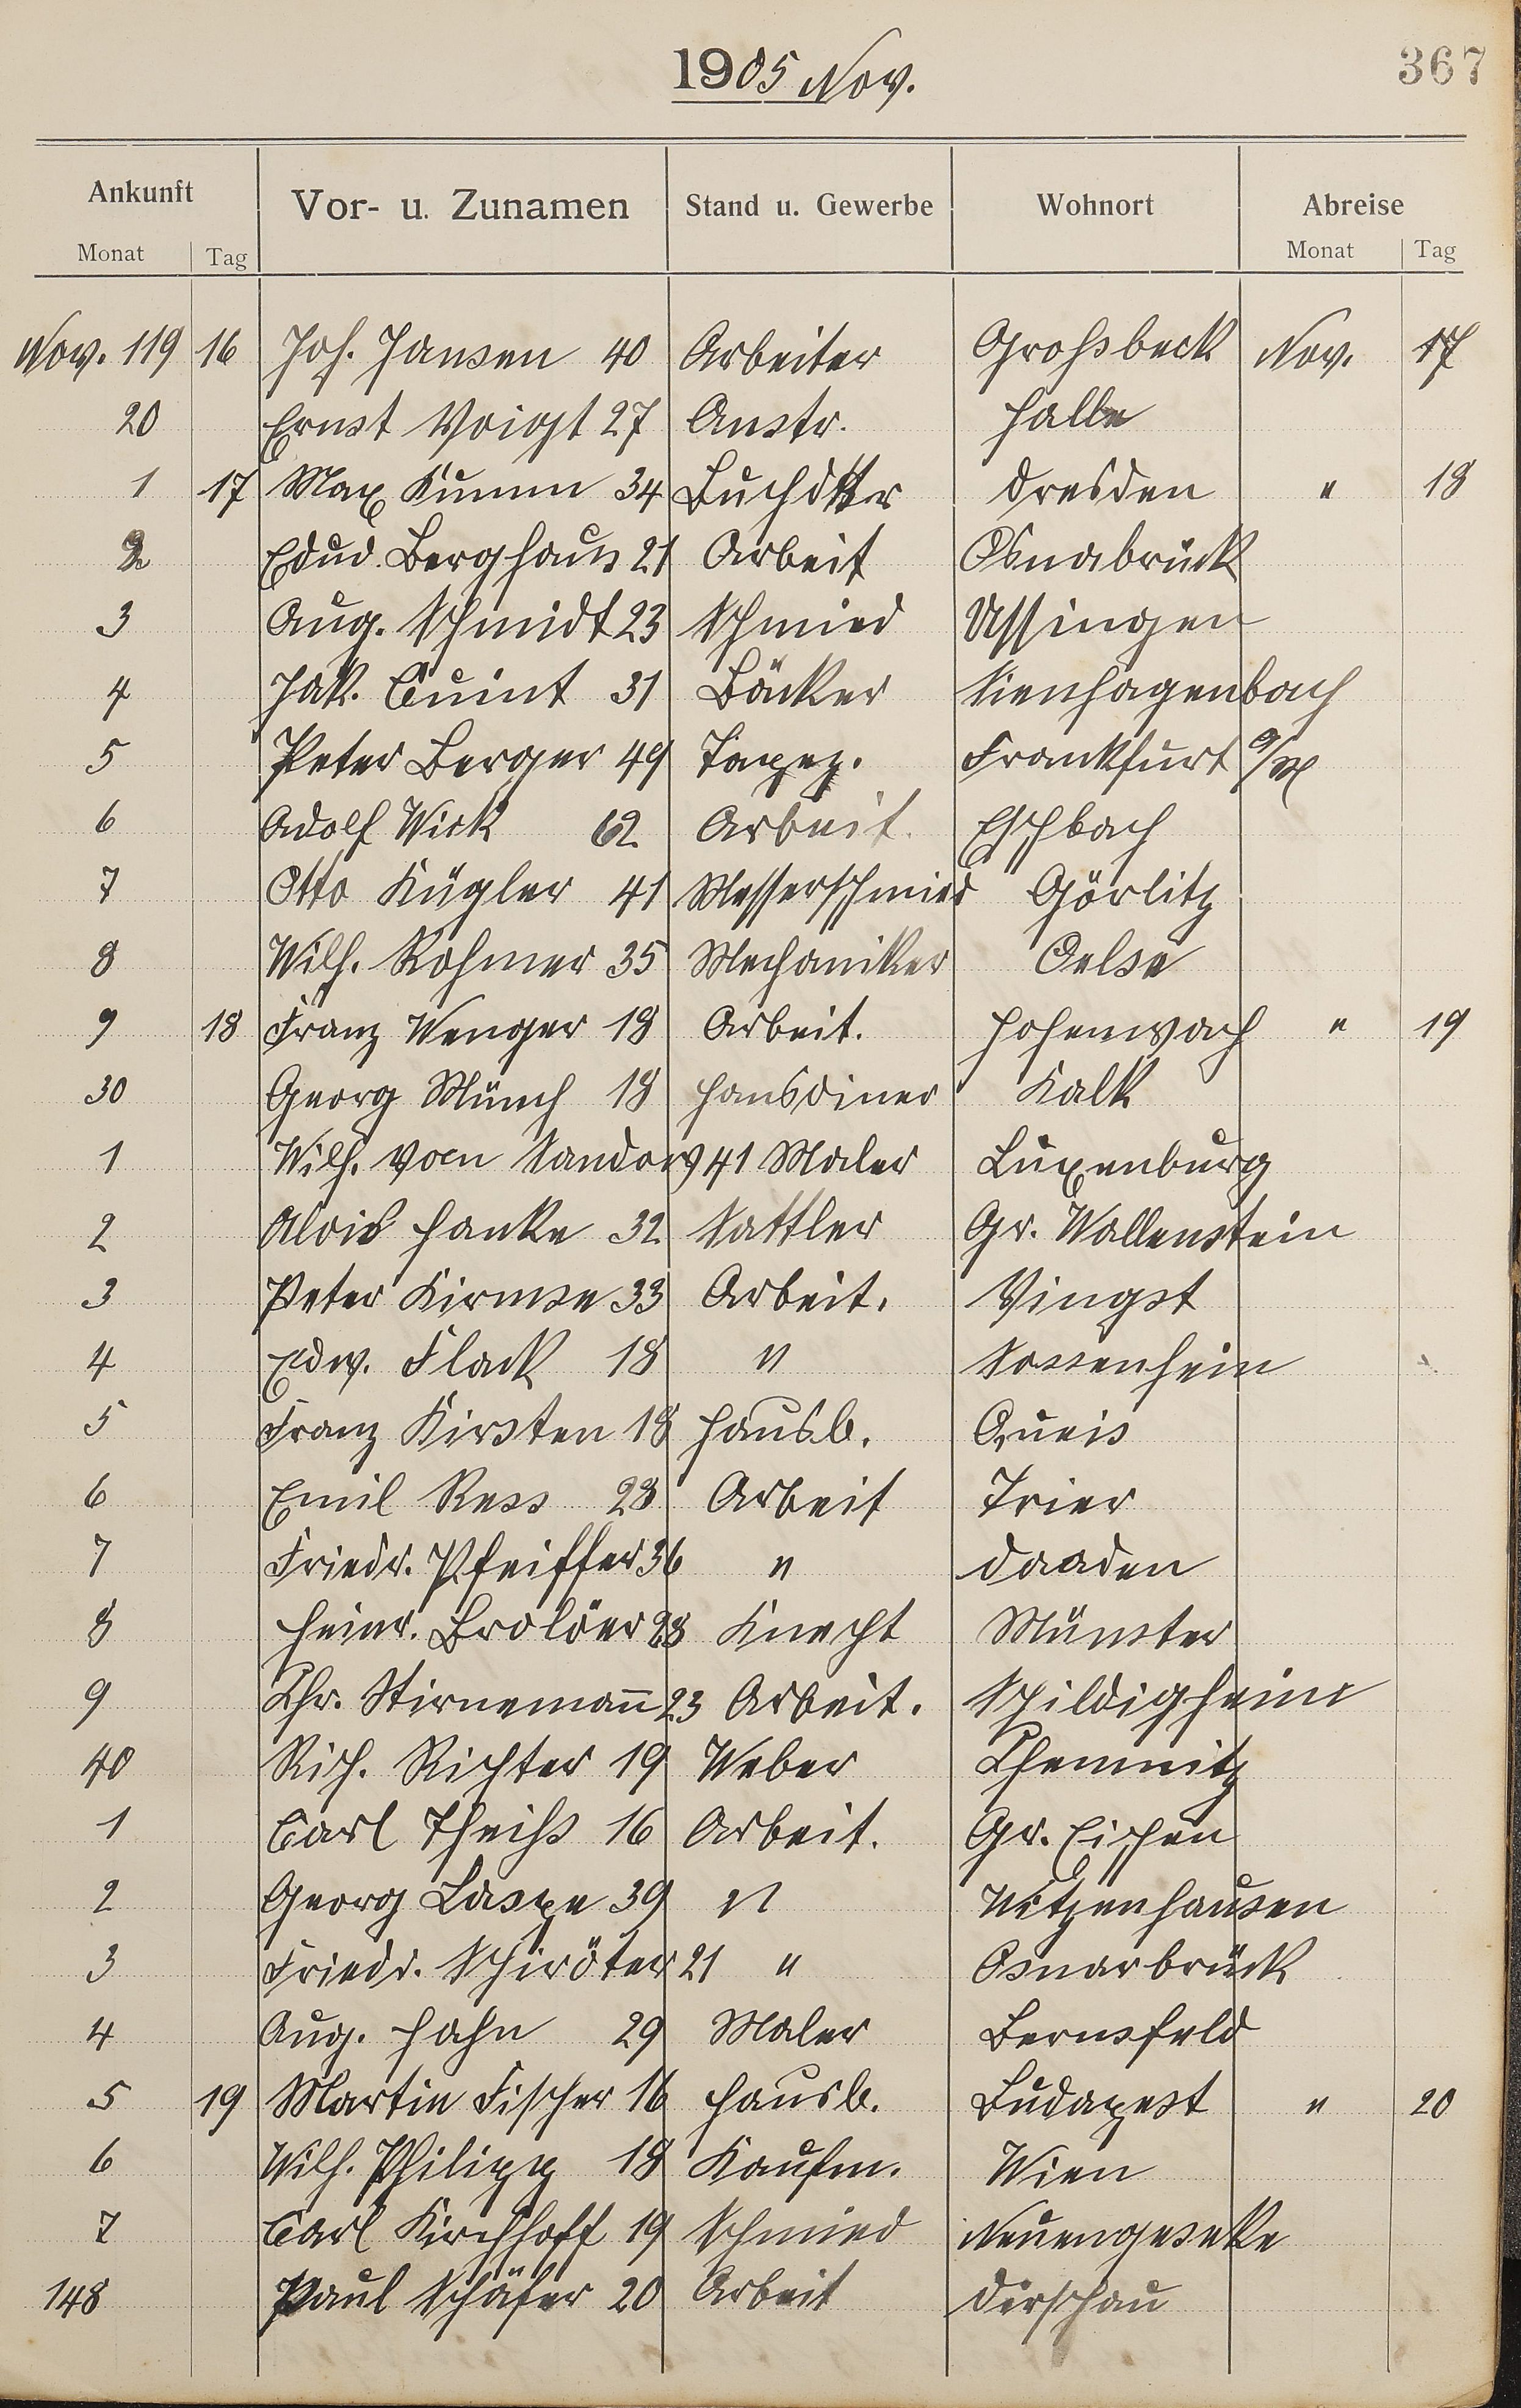 1905 Nov.
367
Ankunft Vor- u. Zunamen Stand u. Gewerbe Wohnort Abreise
Monat Tag Monat Tag
Nov. 119 16 Joh. Jansen 40 Arbeiter Großbeck Nov. 17
20 Ernst Voigt 27 Anstr. Halle
1 17 Max Kumm 34 Buchdkr Dresden " 18
2 Edud. Berghaus 21 Arbeit Osnabrück
3 Aug. Schmidt 23 Schmied Ussingen
4 Jak. Quint 31 Bäcker Sienhagenbach
5 Peter Berger 49 Tapez. Frankfurt a/M
6 Adolf Wick 62 Arbeit. Eschbach
7 Otto Kügler 41 Messerschmied Görlitz
8 Wilh. Rohmer 35 Mechaniker Oelse
9 18 Franz Wenger 18 Arbeit. Hohenwach " 19
30 Georg Münch 18 Hausdiner Kalk
1 Wilh. van Sandow 41 Maler Luxenburg
2 Alois Hanke 32 Sattler Gr. Wallenstein
3 Peter Kirmse 33 Arbeit. Vingst
4 Edw. Flack 18 " Sossenheim
5 Franz Kirsten 18 Hausb. Queis
6 Emil Ress 28 Arbeit Trier
7 Friedr. Pfeiffer 36 " Daaden
8 Heinr. Brolöer 28 Knecht Münster
9 Chr. Stirnemann 23 Arbeit. Schildigheim
40 Rich. Richter 19 Weber Chemnitz
1 Carl Theiß 16 Arbeit. Gr. Eichen
2 Georg Laspe 39 " Witzenhausen
3 Friedr. Schröter 21 " Osnarbrück
4 Aug. Hahn 29 Maler Bernsfeld
5 19 Martin Fischer 16 Hausb. Budapest " 20
6 Wilh. Philipp 18 Kaufm. Wien
7 Carl Kirchhoff 19 Schmied Neuengeseke
148 Paul Schäfer 20 Arbeit Dirschau